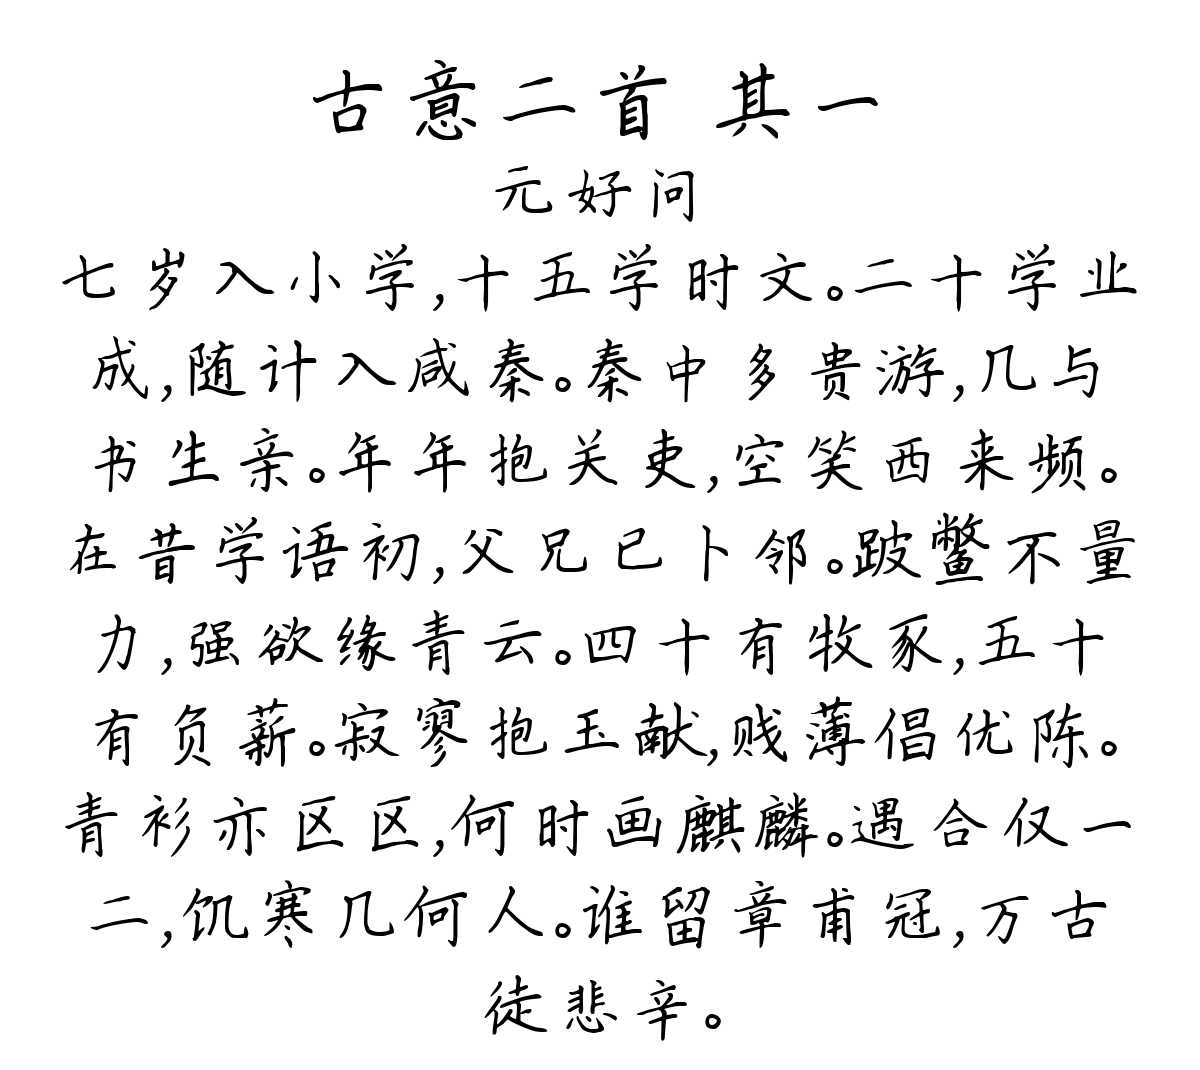 古意二首 其一
元好问
七岁入小学,十五学时文。二十学业
成,随计入咸秦。秦中多贵游,几与
书生亲。年年抱关吏,空笑西来频。
在昔学语初,父兄已卜邻。跛鳖不量
力,强欲缘青云。四十有牧豕,五十
有负薪。寂寥抱玉献,贱薄倡优陈。
青衫亦区区,何时画麒麟。遇合仅一
二,饥寒几何人。谁留章甫冠,万古
徒悲辛。